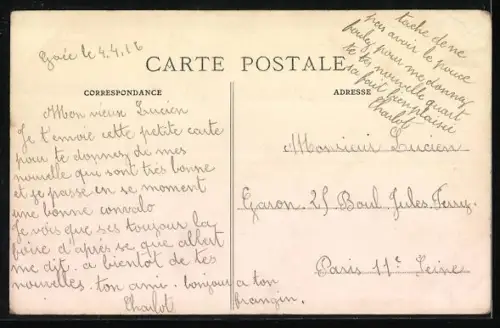 Gacé le 4.4.16
CARTE POSTALE
CORRESPONDANCE
ADRESSE
Mon vieux Lucien
Je t'envoie cette petite carte
pour te donnez de mes
nouvelle qui sont très bonne
et je passe en se moment
une bonne convalo
Je vois que ses toujour la
foire d'après se que albert
me dit. a bientot de tes
nouvelles. ton ami. bonjour a ton
frangin.
Charlot
tache de ne
pas avoir le pouce
foulez pour me donnez
te tes nouvelle quart
sa fait bien plaisir
Charlot
Monsieur Lucien
Garon. 25 Boul Jules. Ferry.
Paris 11e Seine